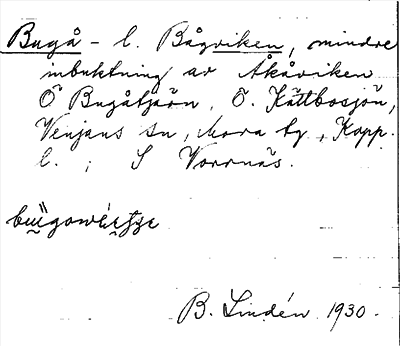 Bugå - l. Bågviken, mindre
inbuktning av Åkåviken
Ö Bugåtjärn, Ö. Kättbosjön,
Venjans sn, Mora tg, Kopp.
l. ; S Vorrnäs.
B. Lindén 1930.